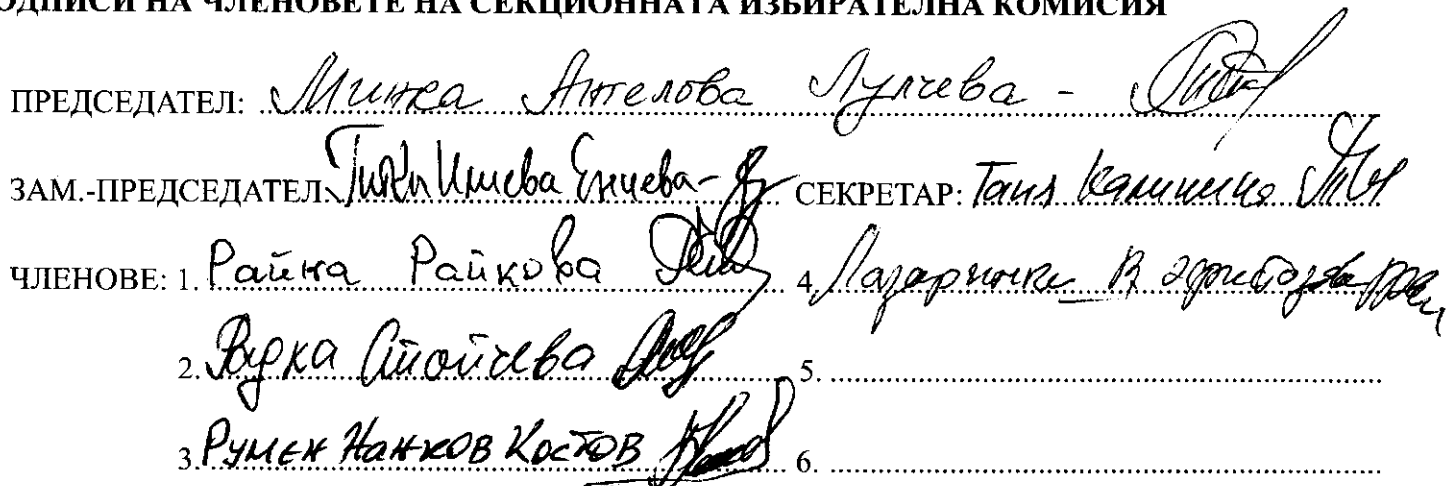 ОДПИСИ НА ЧЛЕНОВЕТЕ НА СЕКЦИОННАТА ИЗБИРАТЕЛНА КОМИСИЯ
ПРЕДСЕДАТЕЛ: Минка Ангелова Лулчева -
ЗАМ.-ПРЕДСЕДАТЕЛ: Илиева Енчева - СЕКРЕТАР: Таня Калинина
ЧЛЕНОВЕ: 1. Райна Райкова 4. Лазаринка
2. Радка Стойчева 5.
3. Румен Нанков Костов 6.